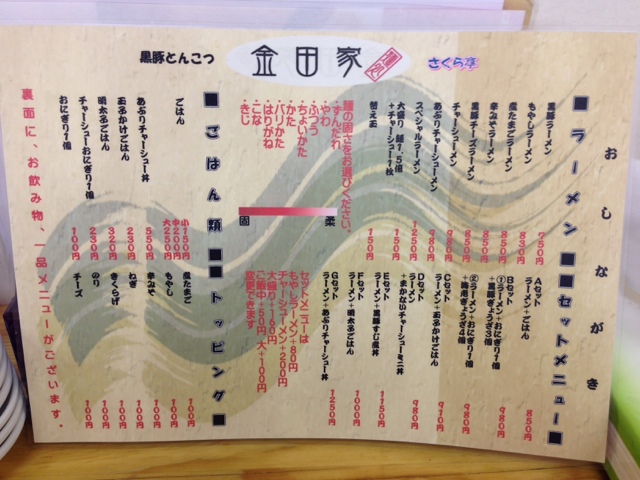 黒豚とんこつ
金田家
さくら亭
おしながき
■ラーメン■
黒豚ラーメン 750円
もやしラーメン 830円
煮たまごラーメン 850円
辛みそラーメン 830円
黒豚チーズラーメン 850円
チャーシューメン 950円
あぶりチャーシューメン 980円
スペシャルラーメン 1250円
大盛り 麺1.5倍 150円
+チャーシュー1枚
替え玉 150円
■セットメニュー■
Aセット 850円
ラーメン+ごはん
Bセット
①ラーメン+おにぎり1個 980円
+黒豚ぎょうざ3個
②ラーメン+おにぎり1個 980円
Cセット 910円
ラーメン+玉るかけごはん
Dセット 980円
ラーメン
+まかないチャーシューミニ丼
Eセット 1150円
ラーメン+黒豚すむ魔丼
Fセット 1000円
ラーメン+明太子ごはん
Gセット 1250円
ラーメン+あぶりチャーシュー丼
麺の固さをお選びください。
・ずんだれ
・やわ
・ふつう
・ちょいかた
・かた
・バリかた
・はりがね
・こな
・きじ
固
柔
セットメニューは
もやしラーメン+80円
チャーシューメン+200円
大盛り+160円
ご飯中+50円 大+100円
変更できます
■ごはん類■
ごはん 小150円
中200円
大250円
あぶりチャーシュー丼 550円
玉るかけごはん 230円
明太子ごはん 320円
チャーシューおにぎり1個 230円
おにぎり1個 100円
■トッピング■
煮たまご 100円
もやし 100円
辛みそ 100円
ねぎ 100円
きくらげ 100円
のり 100円
チーズ 100円
裏面に、お飲み物、一品メニューがございます。